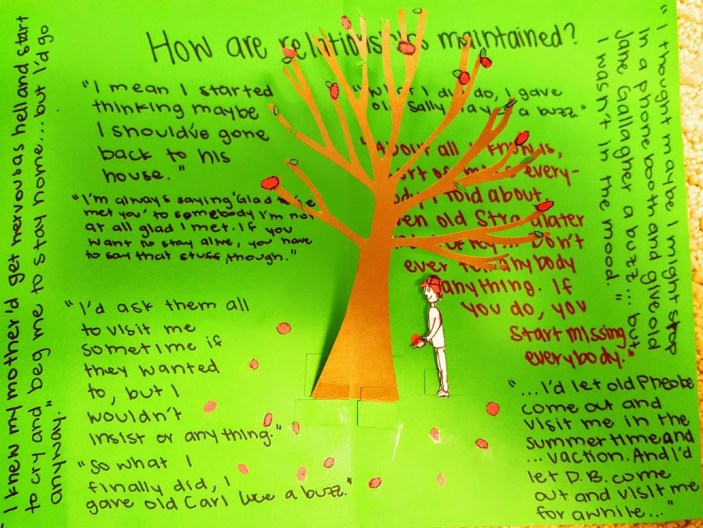 How are relationships maintained?
"I mean I started
thinking maybe
I should've gone
back to his
house."
"I'm always saying 'Glad to've
met you' to somebody I'm not
at all glad I met. If you
want to stay alive, you have
to say that stuff, though."
"I'd ask them all
to visit me
sometime if
they wanted
to, but I
wouldn't
insist or anything."
"So what I
finally did, I
gave old Carl Luce a buzz."
I did do, I gave
old Sally a buzz."
"About all I
sort of miss every-
I told about.
old
Don't
ever tell anybody
anything. If
you do, you
start missing
everybody."
"...I'd let old Pheobe
come out and
visit me in the
summertime and
... vaction. And I'd
let D.B. come
out and visit me
for awhile..."
"I thought maybe I might stop
in a phone booth and give old
Jane Gallagher a buzz... but
I wasn't in the mood..."
I knew my mother'd get nervous as hell and start
to cry and beg me to stay home... but I'd go
anyway."